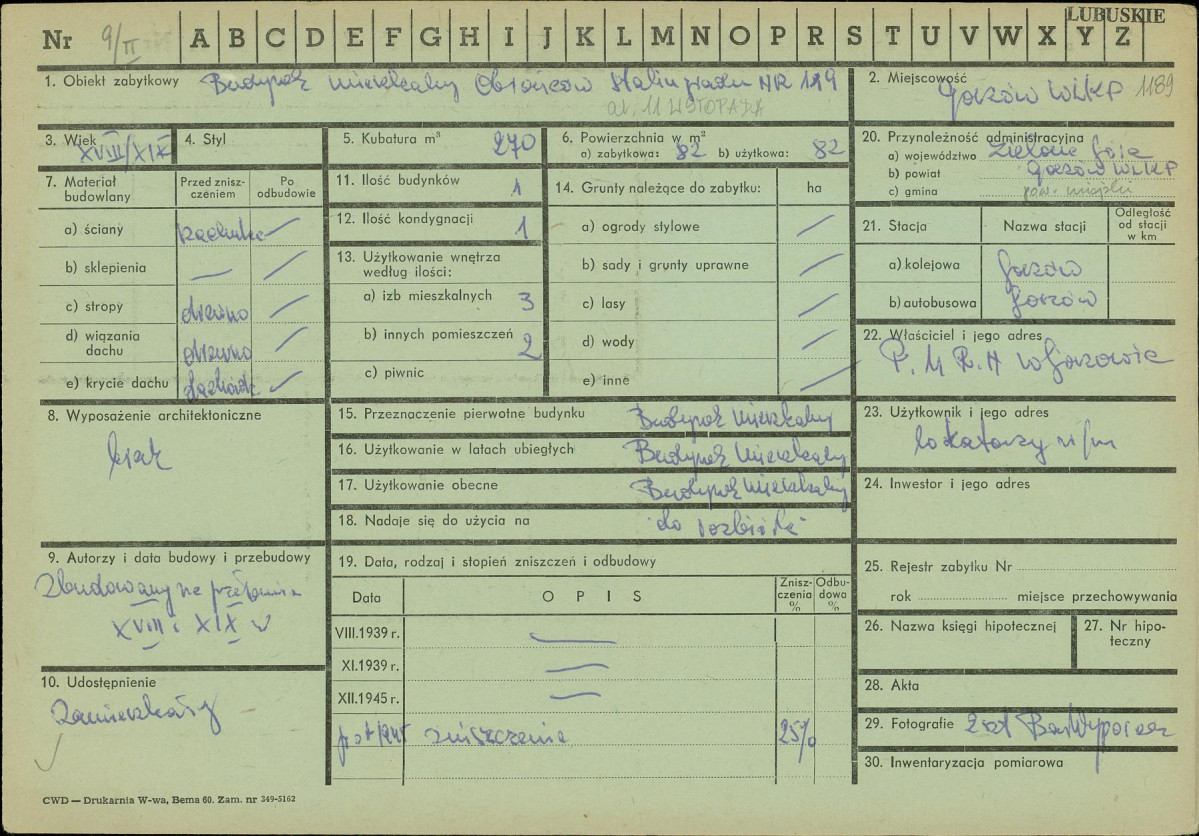 LUBUSKIE
Nr 9/II A B C D E F G H I J K L M N O P R S T U V W X Y Z
1. Obiekt zabytkowy Budynek mieszkalny Obrońców Stalingradu NR 119
ul. 11 LISTOPADA
2. Miejscowość
Gorzów WLKP 1189
3. Wiek
XVIII/XIX
4. Styl
5. Kubatura m³ 270
6. Powierzchnia w m²
a) zabytkowa: 82 b) użytkowa: 82
20. Przynależność administracyjna
a) województwo Zielona Góra
b) powiat Gorzów WLKP
c) gmina pow. miejski
7. Materiał budowlany
Przed zniszczeniem
Po odbudowie
a) ściany
b) sklepienia —
c) stropy drewno
d) wiązania dachu drewno
e) krycie dachu
11. Ilość budynków 1
12. Ilość kondygnacji 1
13. Użytkowanie wnętrza
według ilości:
a) izb mieszkalnych 3
b) innych pomieszczeń 2
c) piwnic
14. Grunty należące do zabytku: ha
a) ogrody stylowe
b) sady i grunty uprawne
c) lasy
d) wody
e) inne
21. Stacja Nazwa stacji Odległość od stacji w km
a) kolejowa Gorzów
b) autobusowa Gorzów
22. Właściciel i jego adres
P. M R. N w Gorzowie
8. Wyposażenie architektoniczne
brak
15. Przeznaczenie pierwotne budynku Budynek mieszkalny
16. Użytkowanie w latach ubiegłych Budynek mieszkalny
17. Użytkowanie obecne Budynek mieszkalny
18. Nadaje się do użycia na do rozbiórki
23. Użytkownik i jego adres
lokatorzy
24. Inwestor i jego adres
9. Autorzy i data budowy i przebudowy
Zbudowany na przełomie
XVIII i XIX
19. Data, rodzaj i stopień zniszczeń i odbudowy
Data OPIS Zniszczenia % Odbudowa %
VIII.1939 r. —
XI.1939 r. —
XII.1945 r. —
zniszczenia 25%
25. Rejestr zabytku Nr
rok miejsce przechowywania
26. Nazwa księgi hipotecznej
27. Nr hipoteczny
28. Akta
29. Fotografie
30. Inwentaryzacja pomiarowa
10. Udostępnienie
Zamieszkały
CWD — Drukarnia W-wa, Bema 60. Zam. nr 349-5162